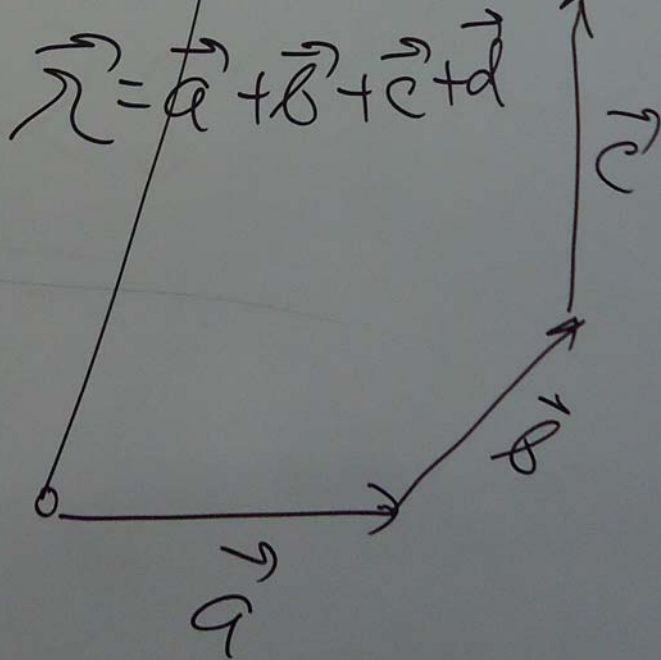 r⃗ = a⃗ + b⃗ + c⃗ + d⃗
c⃗
b⃗
O
a⃗